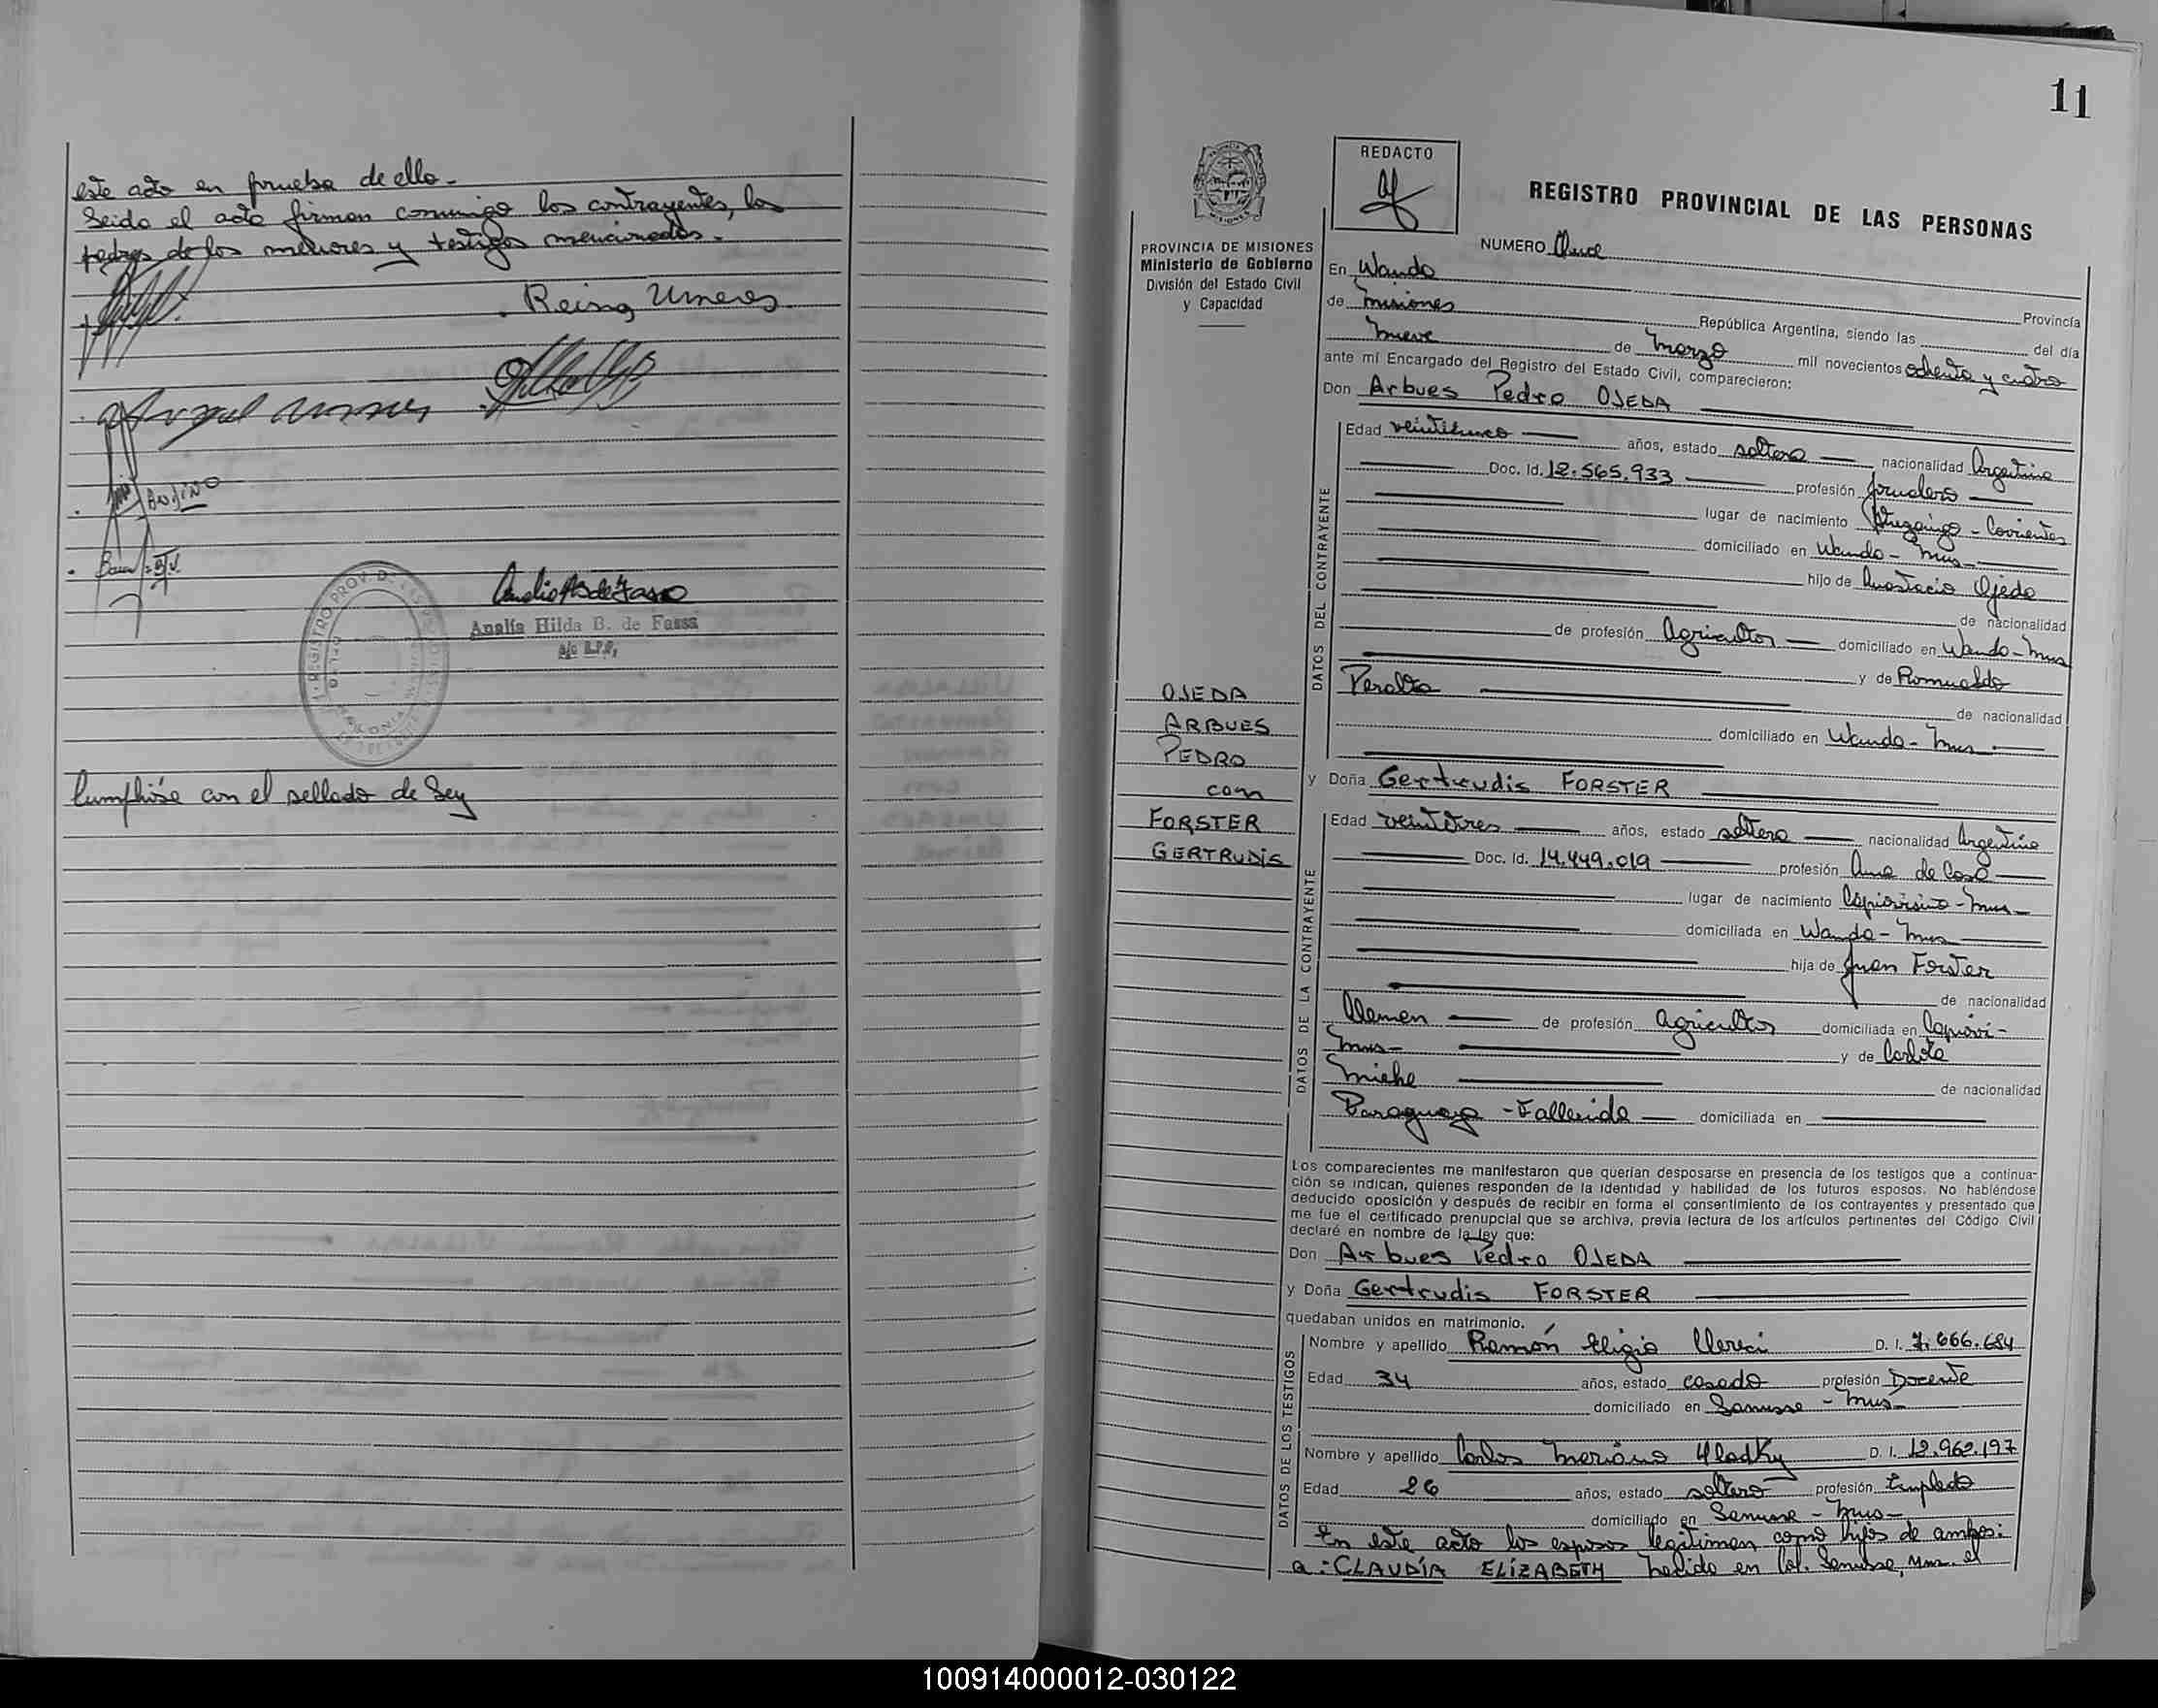 este acto en prueba de ello.-
Leida el acta firman conmigo los contrayentes, los
padres de los menores y testigos mencionados.-
Reina
Analía Hilda B. de Fassa
a/c R.P.P.
Cumplióse con el sellado de Ley
11
REDACTO
REGISTRO PROVINCIAL DE LAS PERSONAS
PROVINCIA DE MISIONES
Ministerio de Gobierno
División del Estado Civil
y Capacidad
NUMERO Once
En Wanda
Provincia
de Misiones República Argentina, siendo las del día
nueve de Marzo mil novecientos ochenta y cuatro
ante mí Encargado del Registro del Estado Civil, comparecieron:
Don Arbues Pedro OJEDA
DATOS DEL CONTRAYENTE
Edad años, estado soltero nacionalidad Argentina
Doc. Id. 12.565.933 profesión
lugar de nacimiento Ituzaingo - Corrientes
domiciliado en Wanda - Mns
hijo de Anastacio Ojeda
de nacionalidad
de profesión Agricultor domiciliado en Wanda - Mns
y de Romualda
Peralta
de nacionalidad
domiciliado en Wanda - Mns
OJEDA
ARBUES
PEDRO
con
FORSTER
GERTRUDIS
y Doña Gertrudis FORSTER
DATOS DE LA CONTRAYENTE
Edad veintitres años, estado soltera nacionalidad Argentina
Doc. Id. 14.449.019 profesión Ama de Casa
lugar de nacimiento - Mns
domiciliada en Wanda - Mns
hija de Juan Forster
de nacionalidad
Aleman de profesión Agricultor domiciliada en Capiovi -
Mns - y de Carlota
Miehe
de nacionalidad
Paraguaya - Fallecida domiciliada en
Los comparecientes me manifestaron que querían desposarse en presencia de los testigos que a continua-
ción se indican, quienes responden de la identidad y habilidad de los futuros esposos. No habiéndose
deducido oposición y después de recibir en forma el consentimiento de los contrayentes y presentado que
me fue el certificado prenupcial que se archiva, previa lectura de los artículos pertinentes del Código Civil
declaré en nombre de la ley que:
Don Arbues Pedro OJEDA
y Doña Gertrudis FORSTER
quedaban unidos en matrimonio.
DATOS DE LOS TESTIGOS
Nombre y apellido Ramón Eligio D. I. 7.666.684
Edad 34 años, estado casado profesión Docente
domiciliado en Lanusse - Mns
Nombre y apellido Carlos Mariano Hladky D. I. 12.962.197
Edad 26 años, estado soltero profesión Empleado
domiciliado en Lanusse - Mns -
En este acto los esposos legitiman como hijos de ambos:
a: CLAUDÍA ELÍZABETH nacida en Col. Lanusse, Mns. el
100914000012-030122